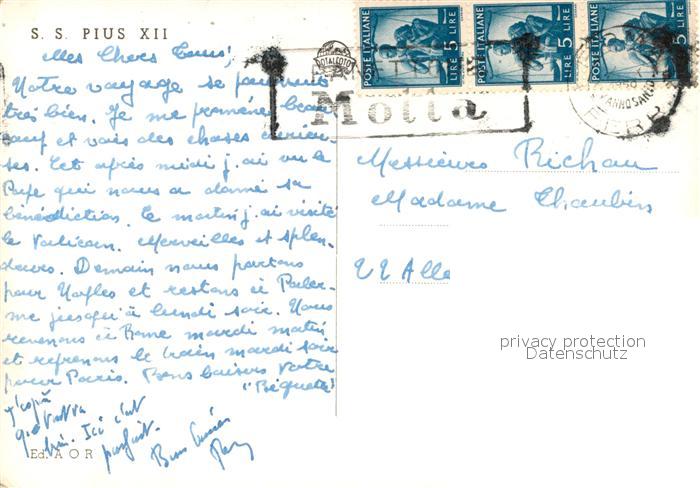 S. S. PIUS XII
Mes Chers Tous,
Notre voyage se poursuit
très bien. Je me promène beau
coup et vois des choses curieu-
ses. Cet après midi j'ai vu le
Pape qui nous a donné sa
bénédiction. Ce matin j'ai visité
le Vatican. Merveilles et splen-
deurs. Demain nous partons
pour Naples et restons à Paler-
me jusqu'à lundi soir. Nous
revenons à Rome mardi matin
et reprenons le train mardi soir
pour Paris. Bons baisers votre
"Biquette"
J'espère
que tout va
bien. Ici c'est
parfait.
Bons
Ed. A O R
POSTE ITALIANE 5 LIRE
POSTE ITALIANE 5 LIRE
5 LIRE
Motta
ANNO SANTO
Messieurs Richau
Madame Chaubin
privacy protection
Datenschutz